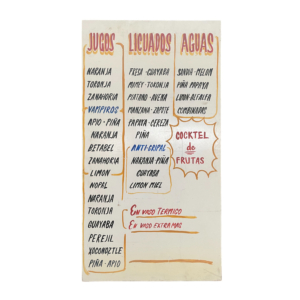 JUGOS
NARANJA
TORONJA
ZANAHORIA
VAMPIROS
APIO-PIÑA
NARANJA
BETABEL
ZANAHORIA
LIMON
NOPAL
NARANJA
TORONJA
GUAYABA
PEREJIL
XOCONOZTLE
PIÑA-APIO
LICUADOS
FRESA-GUAYABA
MAMEY-TORONJA
PLATANO-AVENA
MANZANA-ZAPOTE
PAPAYA-CEREZA
PIÑA
ANTI-GRIPAL
NARANJA-PIÑA
GUAYABA
LIMON MIEL
AGUAS
SANDIA-MELON
PIÑA PAPAYA
LIMON-BETABEL
COMBINADAS
COCKTEL
de
FRUTAS
EN VASO TERMICO
EN VASO EXTRA MAS